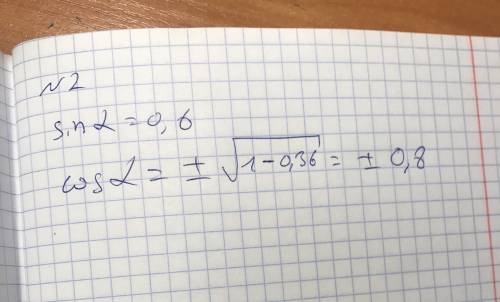 №2
sin α = 0,6
cos α = ± √1-0,36 = ± 0,8